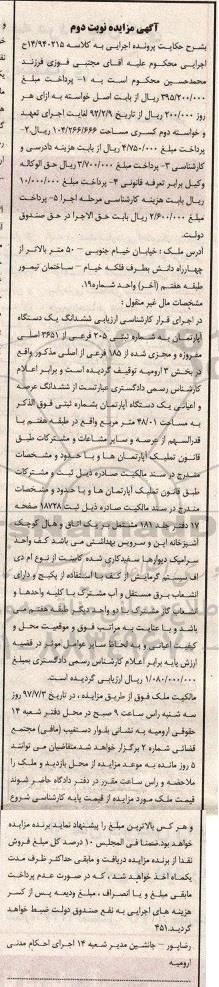 آگهی مزایده نوبت دوم
بشرح حکایت پرونده اجرایی به کلاسه ۱۴/۹۴۰۲۱۵ج
اجرایی محکوم علیه آقای مجتبی فوزی فرزند
محمدحسین محکوم است به ۱- پرداخت مبلغ
۳۹۵/۲۰۰/۰۰۰ ریال از بابت اصل خواسته به ازای هر
روز ۲۰۰/۰۰۰ ریال از تاریخ ۹۲/۲/۹ لغایت اجرای تعهد
و خواسته دوم کسری مساحت ۱۰۴/۲۶۶/۶۶۶ ریال ۲-
پرداخت مبلغ ۴/۷۵۰/۰۰۰ ریال از بابت هزینه دادرسی و
کارشناسی ۳- پرداخت مبلغ ۳/۷۰۰/۰۰۰ ریال حق الوکاله
وکیل برابر تعرفه قانونی ۴- پرداخت مبلغ ۱۰/۰۰۰/۰۰۰
ریال بابت هزینه کارشناسی مرحله اجرا ۵- پرداخت
مبلغ ۲/۶۰۰/۰۰۰ ریال بابت حق الاجرا در حق صندوق
دولت.
آدرس ملک : خیابان خیام جنوبی – ۵۰ متر بالاتر از
چهارراه دانش بطرف فلکه خیام – ساختمان تیمور
طبقه هفتم (آخر) واحد شماره ۱۹.
مشخصات مال غیر منقول :
در اجرای قرار کارشناسی ارزیابی ششدانگ یک دستگاه
آپارتمان به شماره ثبتی ۲۰۵ فرعی از ۳۶۵۱ اصلی
مفروزه و مجزی شده از ۱۸۵ فرعی از اصلی مذکور واقع
در بخش ۳ ارومیه توقیف گردیده است و برابر اعلام
کارشناس رسمی دادگستری عبارتست از ششدانگ عرصه
و اعیانی یک دستگاه آپارتمان بشماره ثبتی فوق الذکر
به مساحت ۴۸/۰۱ متر مربع واقع در طبقه هفتم با
قدرالسهم از عرصه و سایر مشاعات و مشترکات طبق
قانون تملیک آپارتمان ها و با حدود و مشخصات
مندرج در سند مالکیت صادره ذیل ثبت و مشترکات
طبق قانون تملیک آپارتمان ها و با حدود و مشخصات
مندرج در سند مالکیت صادره ذیل ثبت ۱۸۷۲۸ صفحه
۱۷ دفتر جلد ۱۸۱ مشتمل بر یک اتاق و هال کوچک
آشپزخانه اپن و سرویس بهداشتی می باشد کف واحد
سرامیک دیوارها سفیدکاری شده کابینت از نوع ام دی
اف سیستم گرمایش از کف با استفاده از پکیج و دارای
انشعاب برق مستقل و آب مشترک با کلیه واحدها و
انشعاب گاز مشترک با دو واحد دیگر طبقه هفتم می
باشد و با عنایت به مراتب فوق و موقعیت محل و
کیفیت اعیانی و به لحاظ سایر عوامل موثر در قضیه
ارزش پایه برابر اعلام کارشناس رسمی دادگستری بمبلغ
۱/۰۸۰/۰۰۰/۰۰۰ ریال ارزیابی گردیده است.
مالکیت ملک فوق از طریق مزایده ، در تاریخ ۹۷/۷/۳ روز
سه شنبه راس ساعت ۹ صبح در محل دفتر شعبه ۱۴
حقوقی ارومیه به نشانی بلوار دستغیب (مافی) مجتمع
قضائی شماره ۲ برگزار خواهد شد متقاضیان می توانند
۵ روز مانده به موعد مزایده از محل بازدید و ملک را
ملاحضه و راس ساعت مقرر در دفتر دادگاه حاضر شوند
قیمت ملک مورد مزایده از قیمت پایه کارشناسی شروع
و هر کس بالاترین مبلغ را پیشنهاد نماید برنده مزایده
خواهد بود.ضمنا فی المجلس ۱۰ درصد کل مبلغ فروش
نقدا از برنده مزایده دریافت و مابقی حداکثر ظرف مدت
یکماه اخذ خواهد شد ، که در صورت عدم پرداخت
مابقی مبلغ و یا انصراف ، مبلغ ودیعه پس از کسر
هزینه های اجرایی به نفع صندوق دولت ضبط خواهد
گردید.۴۵۱
رضاپور – جانشین مدیر شعبه ۱۴ اجرای احکام مدنی
ارومیه